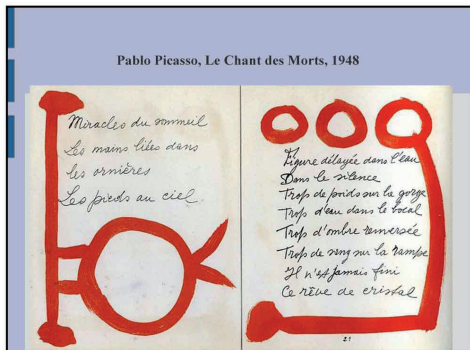 Pablo Picasso, Le Chant des Morts, 1948
Miracles du sommeil
Les mains liées dans
les ornières
Les pieds au ciel
Figure délayée dans l'eau
Dans le silence
Trop de poids sur la gorge
Trop d'eau dans le bocal
Trop d'ombre renversée
Trop de sang sur la rampe
Il n'est jamais fini
Ce rêve de cristal
21